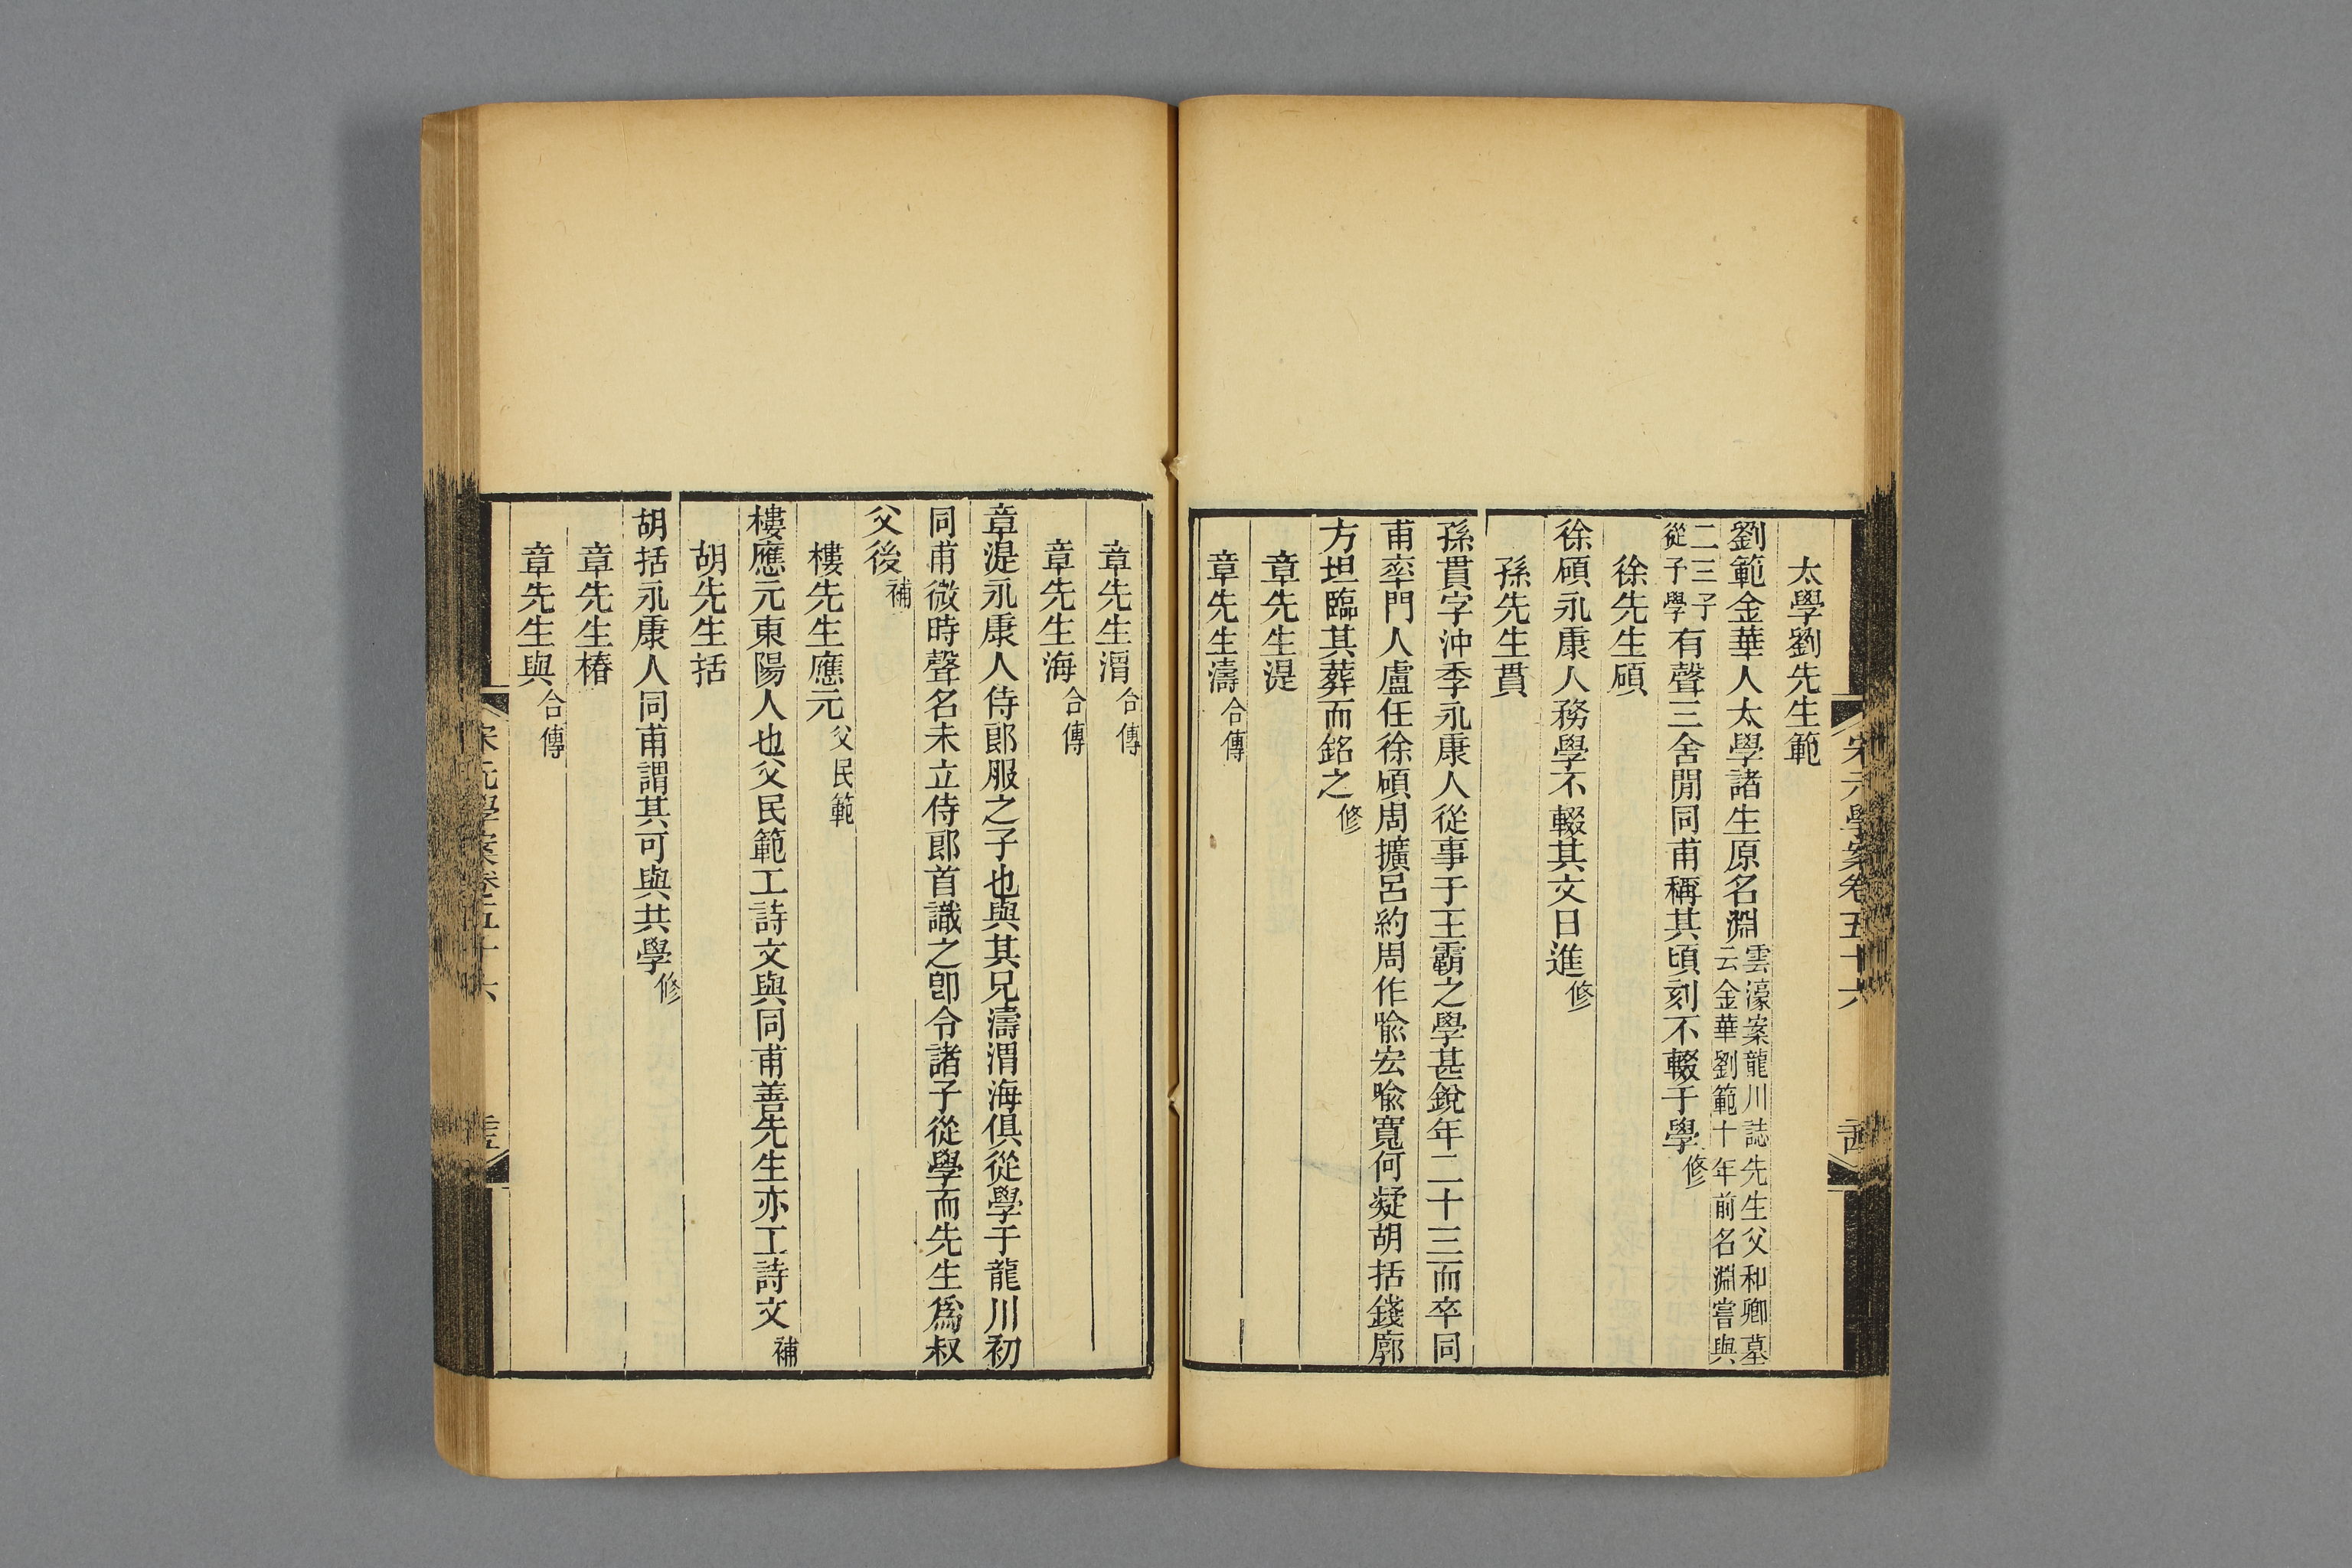 宋元學案卷五十六
太學劉先生範
劉範金華人太學諸生原名淵雲濠案龍川誌先生父和卿墓云金華劉範十年前名淵嘗與
二三子從子學有聲三舍閒同甫稱其頃刻不輟于學修
徐先生碩
徐碩永康人務學不輟其文日進修
孫先生貫
孫貫字沖季永康人從事于王霸之學甚銳年二十三而卒同
甫率門人盧任徐碩周擴呂約周作喩宏喩寬何凝胡括錢廓
方坦臨其葬而銘之修
章先生湜
章先生濤合傳
章先生渭合傳
章先生海合傳
章湜永康人侍郎服之子也與其兄濤渭海俱從學于龍川初
同甫微時聲名未立侍郎首識之卽令諸子從學而先生爲叔
父後補
樓先生應元父民範
樓應元東陽人也父民範工詩文與同甫善先生亦工詩文補
胡先生括
胡括永康人同甫謂其可與共學修
章先生椿
章先生與合傳
宋元學案卷五十六